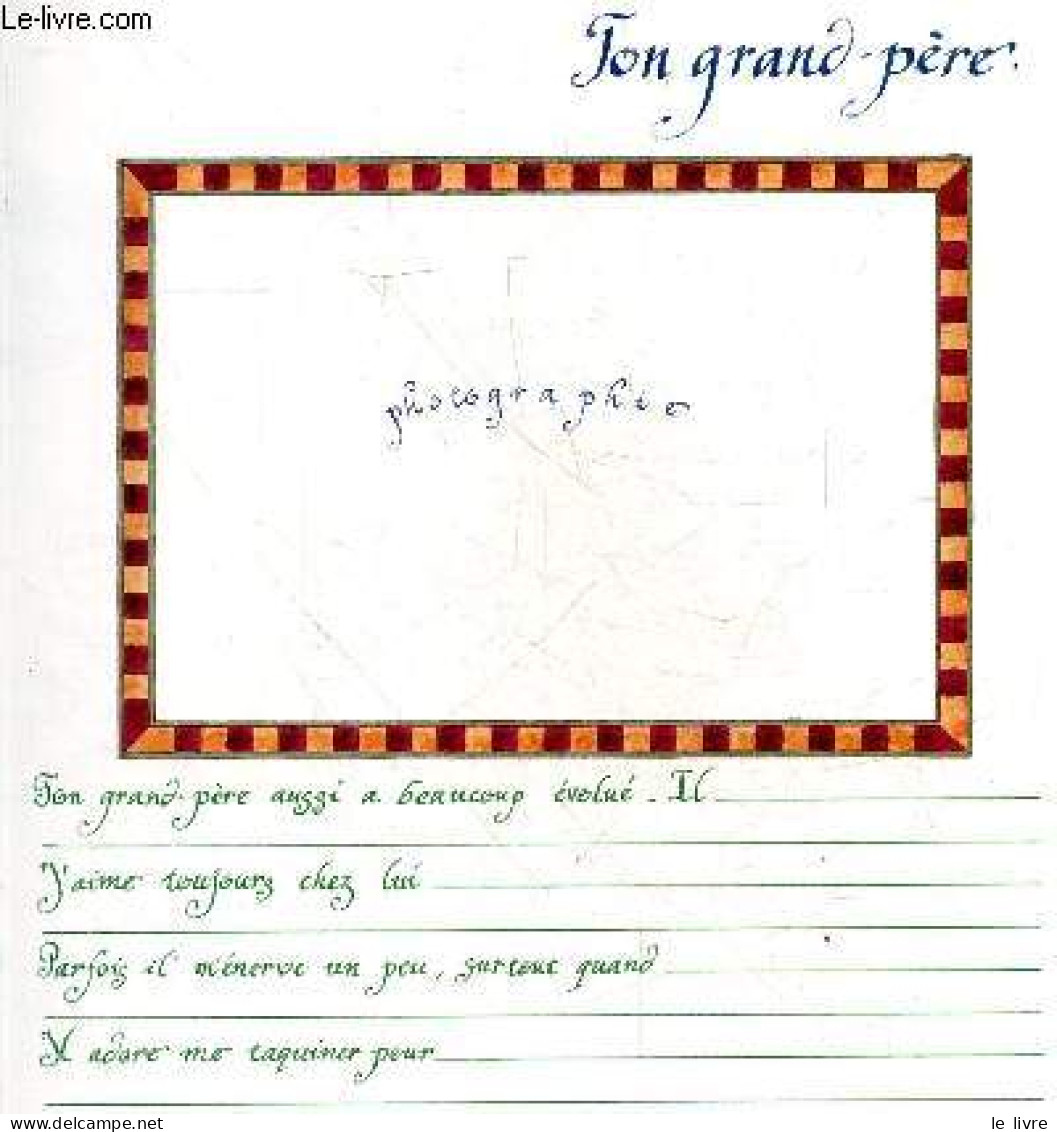 Le-livre.com
Ton grand-père
photographie
Ton grand-père aussi a beaucoup évolué. Il
J'aime toujours chez lui
Parfois il m'énerve un peu, surtout quand
Il adore me taquiner pour
le livre